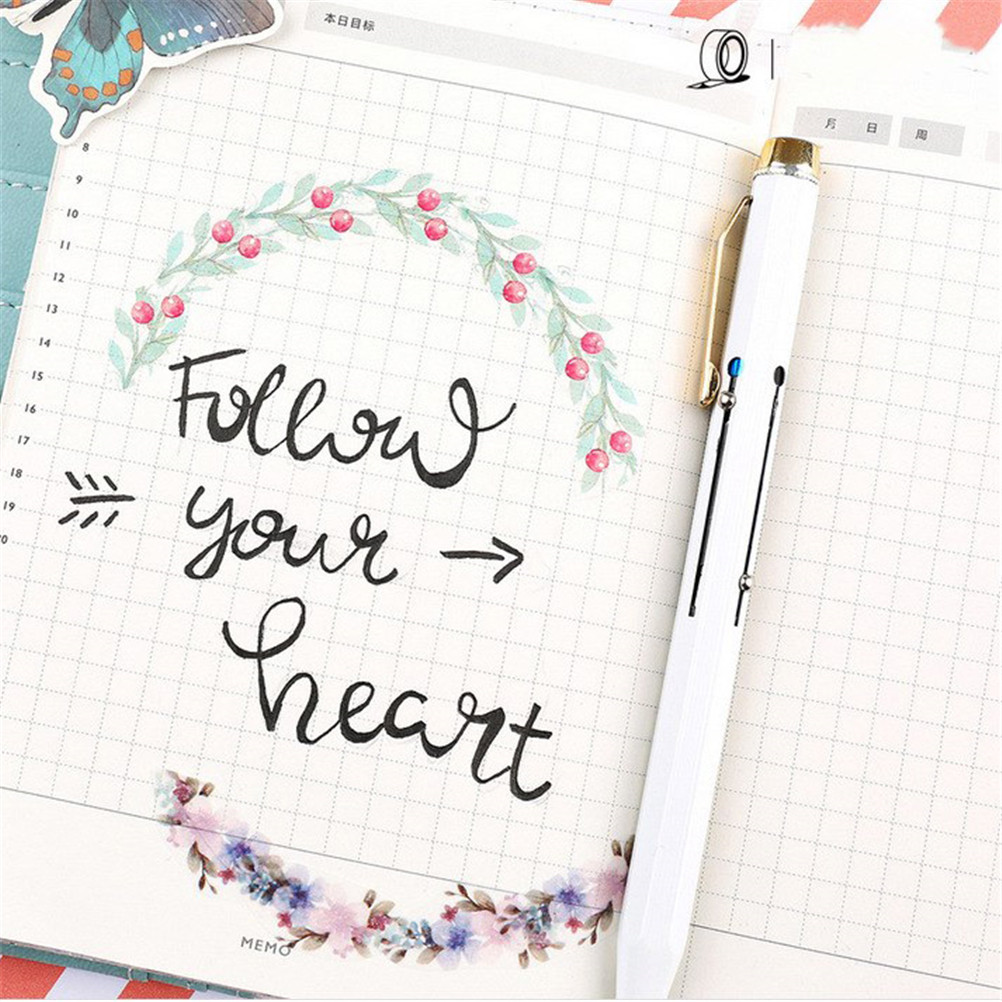 本日目标
月 日 周
8
9
10
11
12
13
14
15
16
17
18
19
Follow
your
heart
MEMO